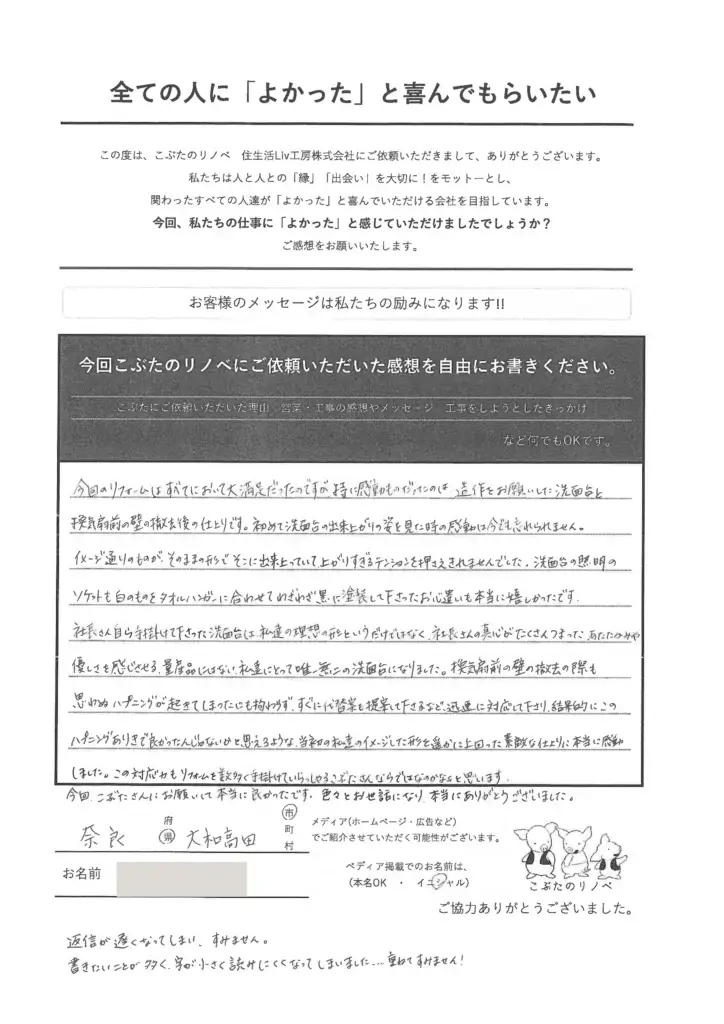 全ての人に「よかった」と喜んでもらいたい
この度は、こぶたのリノベ　住生活Liv工房株式会社にご依頼いただきまして、ありがとうございます。
私たちは人と人との「縁」「出会い」を大切に！をモットーとし、
関わったすべての人達が「よかった」と喜んでいただける会社を目指しています。
今回、私たちの仕事に「よかった」と感じていただけましたでしょうか？
ご感想をお願いいたします。
お客様のメッセージは私たちの励みになります!!
今回こぶたのリノベにご依頼いただいた感想を自由にお書きください。
こぶたにご依頼いただいた理由　営業・工事の感想やメッセージ　工事をしようとしたきっかけ
など何でもOKです。
今回のリフォームはすべてにおいて大満足だったのですが、特に感動ものだったのは 造作をお願いした洗面台と
換気扇前の壁の撤去後の仕上りです。初めて洗面台の出来上がりの姿を見た時の感動は今でも忘れられません。
イメージ通りのものが、そのままの形で そこに出来上っていて上がりすぎるテンションを押さえきれませんでした。洗面台の照明の
ソケットも白のものをタオルハンガーに合わせてわざわざ黒に塗装して下さったお心遣いも本当に嬉しかったです。
社長さん自ら手掛けて下さった洗面台は、私達の理想の形というだけではなく、社長さんの真心がたくさんつまった あたたかみや
優しさも感じさせる、量産品にはない、私達にとって唯一無二の洗面台になりました。換気扇前の壁の撤去の際も
思わぬハプニングが起きてしまったにも拘わらず、すぐに代替案も提案して下さるなど、迅速に対応して下さり、結果的にこの
ハプニングありきで良かったんじゃないかと思えるような、当初の私達のイメージした形を遥かに上回った素敵な仕上りに本当に感動
しました。この対応力もリフォームを数多く手掛けていらっしゃるこぶたさんならではなのかなと思います。
今回、こぶたさんにお願いして本当に良かったです。色々とお世話になり、本当にありがとうございました。
奈良 府 県 大和高田 市 町 村
メディア(ホームページ・広告など)
でご紹介させていただく可能性がございます。
お名前
ペディア掲載でのお名前は、
（本名OK ・ イニシャル）
こぶたのリノベ
ご協力ありがとうございました。
返信が遅くなってしまい、すみません。
書きたいことが多く、字が小さく読みにくくなってしまいました…重ねてすみません！